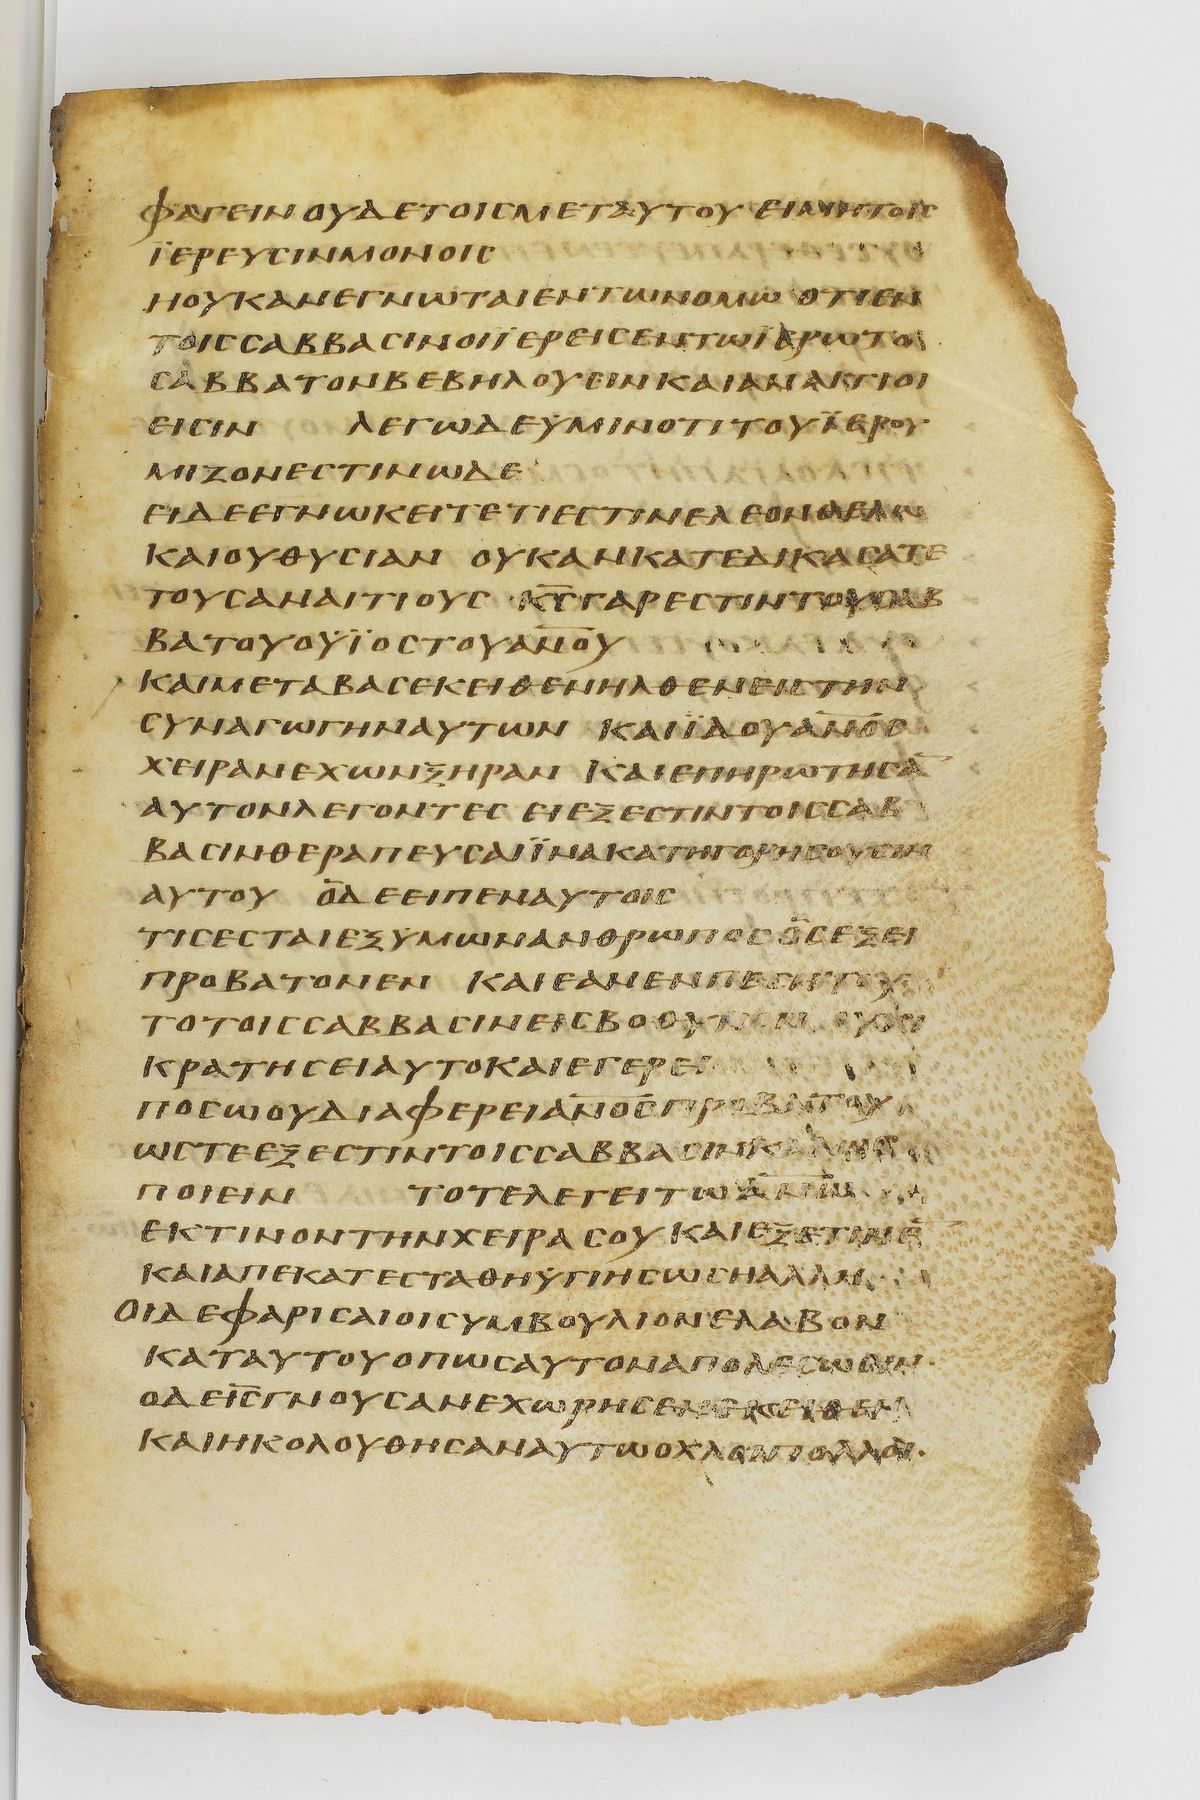 φαγεινουδετοισμεταυτου ειμητοισ
ϊερευσινμονοισ
ηουκανεγνωταιεντωνομω οτιεν
τοισσαββασινοιϊερεισεντωϊερωτο
σαββατονβεβηλουσινκαιαναιτιοι
εισιν λεγωδεϋμινοτιτουϊερου
μιζονεστινωδε
ειδεεγνωκειτετιεστινελεονθελω
καιουθυσιαν ουκανκατεδικασατε
τουσαναιτιουσ κ̅σ̅γαρεστιντουσαβ
βατουοϋϊοστουα̅ν̅ο̅υ̅
καιμεταβασεκειθενηλθενειστην
συναγωγηναυτων καιϊδουα̅ν̅ο̅σ̅
χειρανεχωνξηραν καιεπηρωτησα̅
αυτονλεγοντεσ ειεξεστιντοισσαβ
βασινθεραπευσαιϊνακατηγορησουσιν
αυτου οδεειπεναυτοισ
τισεσταιεξϋμωνανθρωποσοσεξει
προβατονεν καιεανενπεσητου
τοτοισσαββασινεισβοθυνον ουχι
κρατησειαυτοκαιεγερει
ποσωουδιαφερεια̅ν̅ο̅σ̅προβατου
ωστεεξεστιντοισσαββασινκαλωσ
ποιειν τοτελεγειτωα̅ν̅ω̅
εκτινοντηνχειρασου καιεξετινε̅
καιαπεκατεσταθηϋγιησωσηαλλη
οιδεφαρισαιοισυμβουλιονελαβον
καταυτουοπωσαυτοναπολεσωσιν
οδει̅σ̅γνουσανεχωρησενεκειθεν
καιηκολουθησαναυτωοχλοιπολλοι